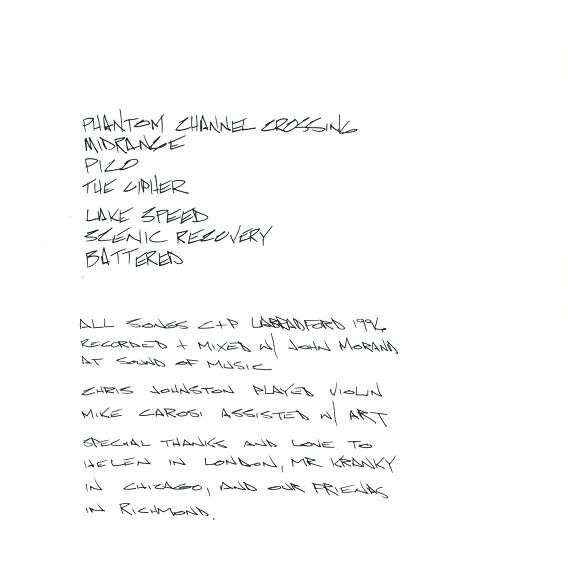 PHANTOM CHANNEL CROSSING
MIDRANGE
PICO
THE CIPHER
LAKE SPEED
SCENIC RECOVERY
BATTERED
ALL SONGS C+P LABRADFORD 1996
RECORDED + MIXED W/ JOHN MORAND
AT SOUND OF MUSIC
CHRIS JOHNSTON PLAYED VIOLIN
MIKE CAROSI ASSISTED W/ ART
SPECIAL THANKS AND LOVE TO
HELEN IN LONDON, MR KRANKY
IN CHICAGO, AND OUR FRIENDS
IN RICHMOND.